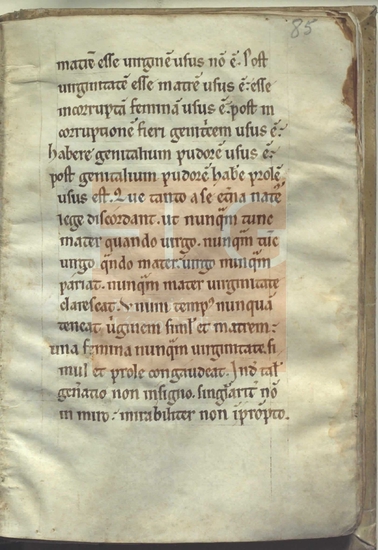 85
matrē esse virginē usus nō ē. Post
virginitatē esse matrē usus ē. esse
incorruptā feminā usus ē. post in
corruptionē fieri genitcem usus ē.
habere genitalium pudorē usus ē.
post genitalium pudorē habē prolē
usus est. Que tanto a se etna nate
lege discordant. ut nunqm tunc
mater quando virgo. nunqm tūc
virgo qndo mater. virgo nunqm
pariat. nunqm mater virginitate
clarescat. unum temp nunquā
teneat simul et matrem.
una femina nunqm virginitate. si
mul et prole congaudeat. Ind tal
genatio non insigno. singlarit nō
in miro. mirabiliter non ipropto.